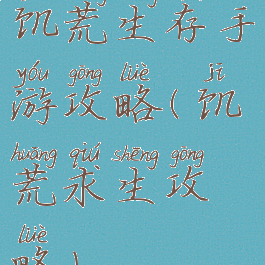 饥荒生存手
yóu gōng lüè jī
游攻略(饥
huāng qiú shēng gōng
荒求生攻
lüè
略)